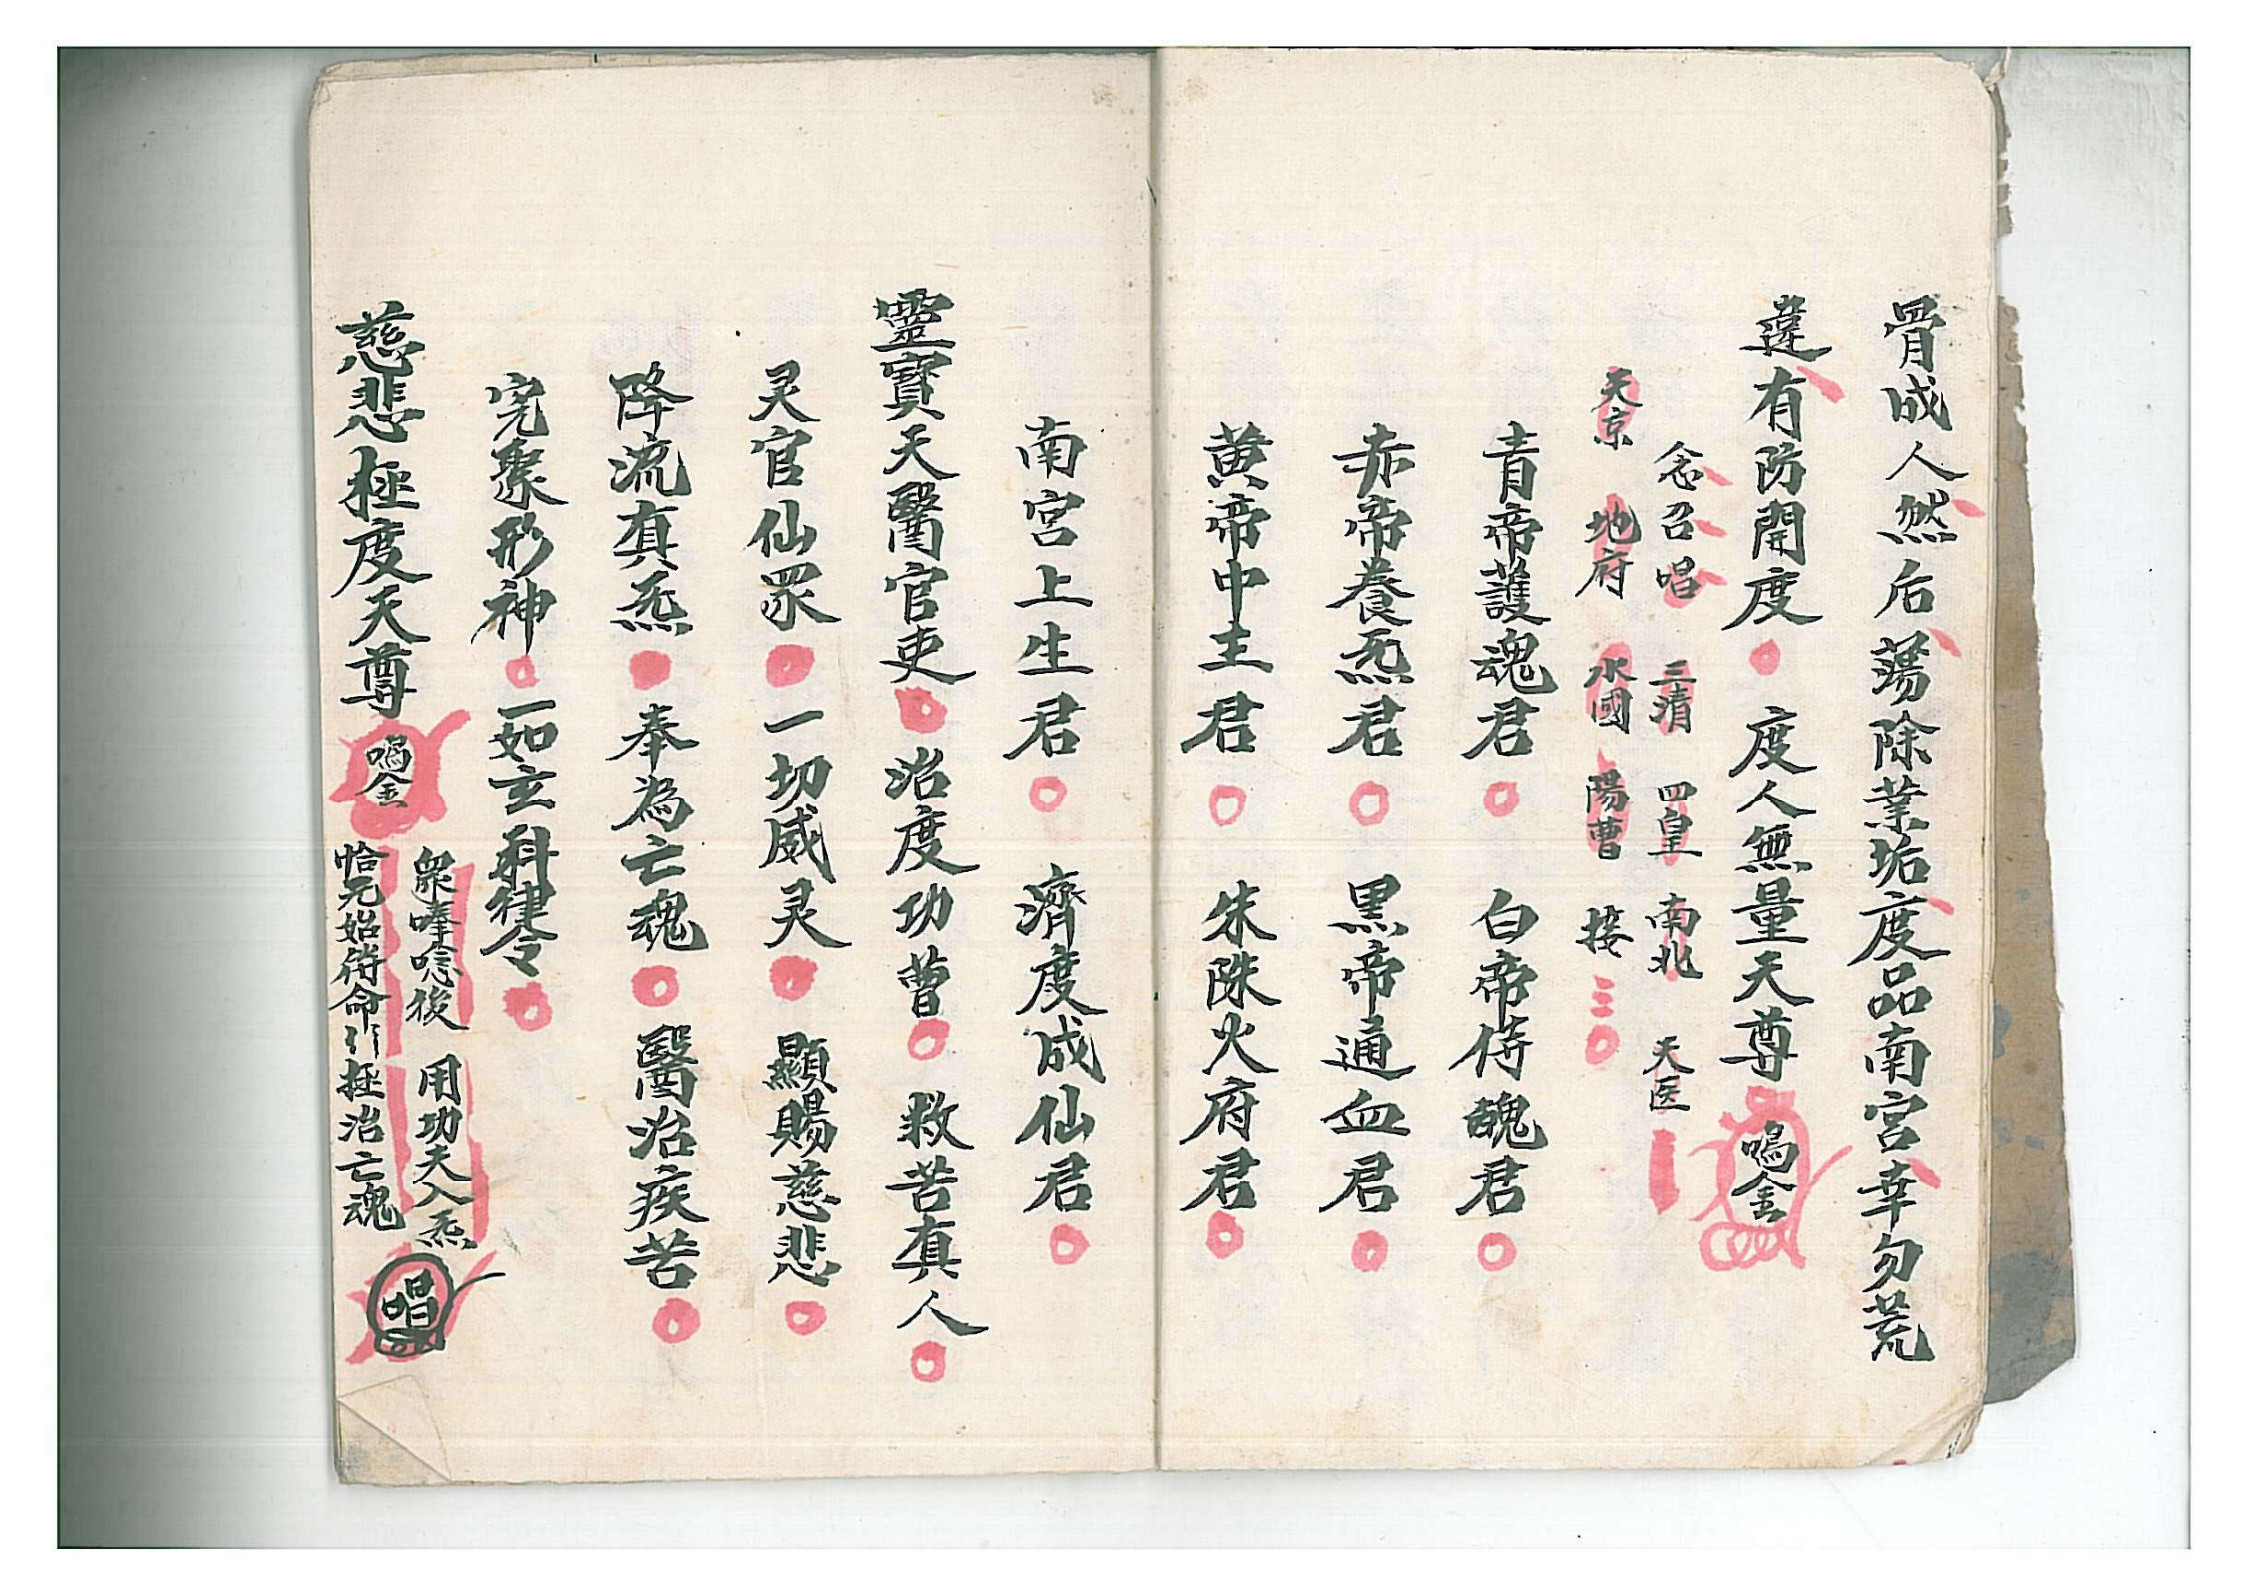 骨成人然后蕩除業垢度品南宮幸勿荒
違有防開度 度人無量天尊 鳴金
念召唱 三清 四皇 南北 天医
天京 地府 水國 陽曹 接 三〇
青帝護魂君 白帝侍魄君
赤帝養炁君 黒帝通血君
黄帝中主君 朱陵火府君
南宮上生君 濟度成仙君
靈寳天醫官吏 治度功曹 救苦真人
灵官仙眾 一切威灵 顯賜慈悲
降流真炁 奉為亡魂 醫治疾苦
完聚形神 一如玄科律令
慈悲拯度天尊 鳴金
眾唪唸後 用功夫入炁
恰元始符命 拯治亡魂
唱